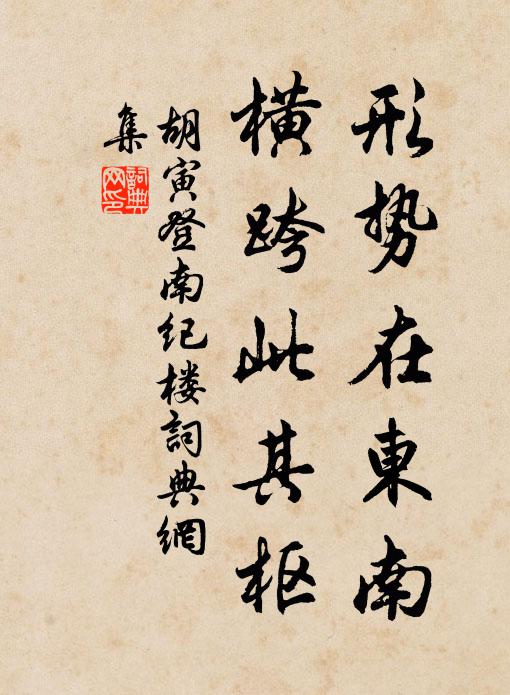 形势在東南
横跨此其枢
胡寅登南纪楼詞典網
集
詞典网印